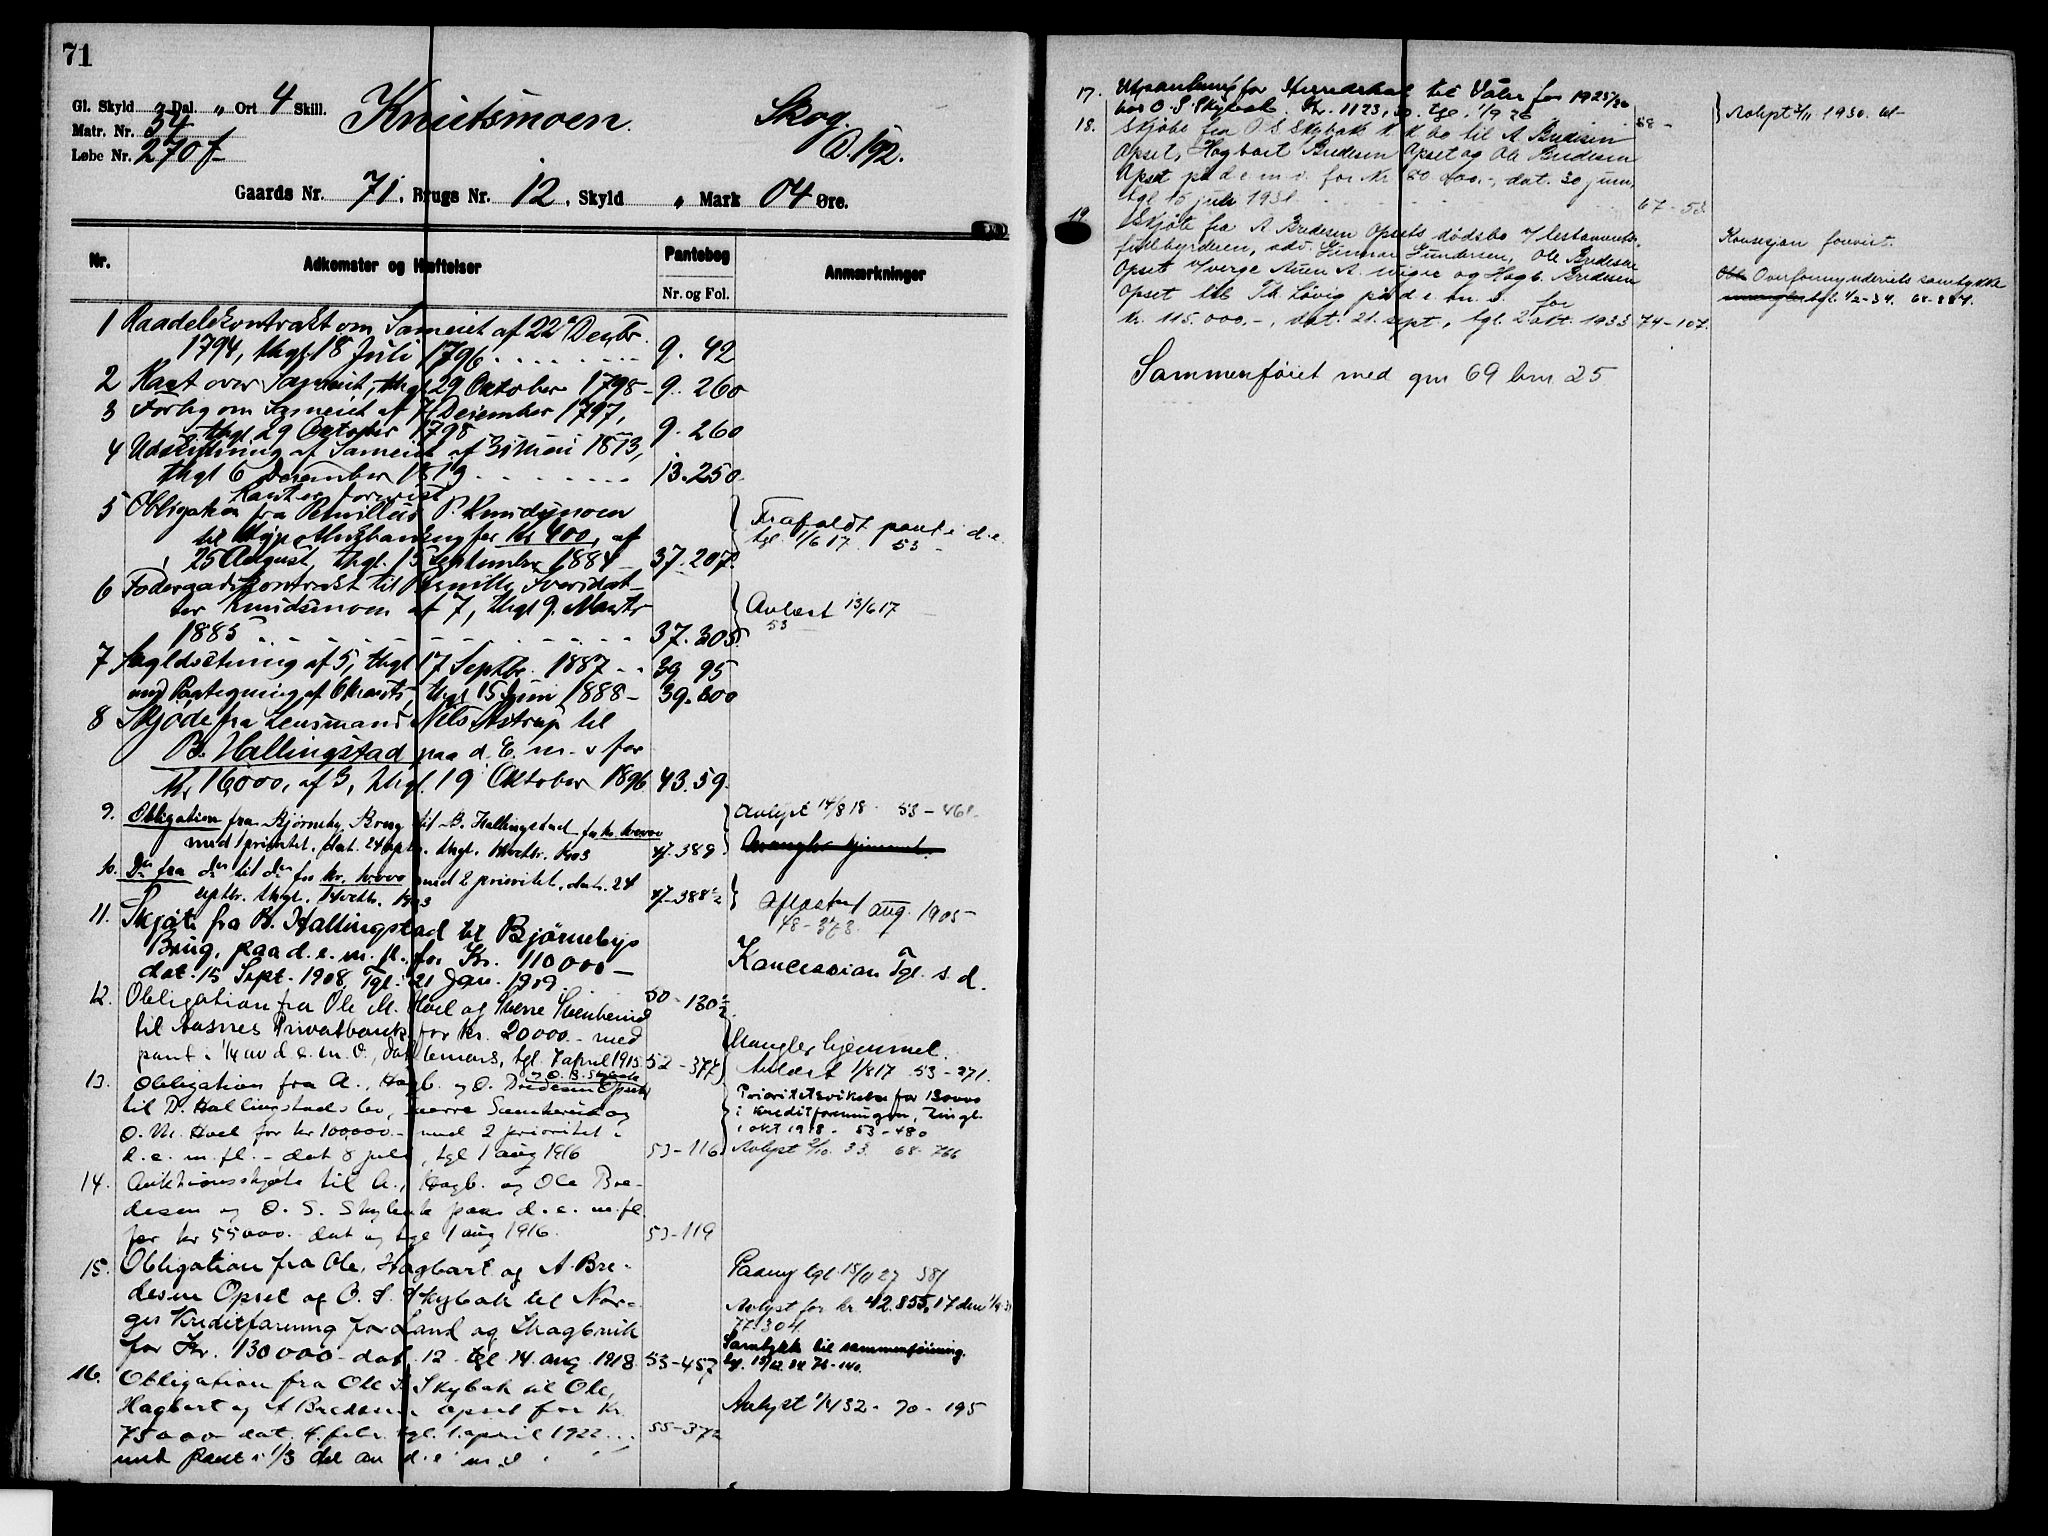 71
Gl. Skyld 3 Dal. „ Ort 4 Skill.
Matr. Nr. 54
Løbe Nr. 270 f
Knutsmoen. Skog.
O. 192.
Gaards Nr. 71, Brugs Nr. 12, Skyld „ Mark 04 Øre.
Nr. Adkomster og Hæftelser Pantebog Anmærkninger
Nr. og Fol.
1 Raadelskontrakt om Sameiet af 22 Decbr.
1794, thgl. 18 Juli 1796 9. 42
2 Kart over Sameiet, thgl 29 Oktober 1798 9. 260
3 Forlig om Sameiet af 7 December 1797,
thgl 29 Oktober 1798 9. 260
4 Udskiftning af Sameiet af 1813,
thgl 6 December 1819 13. 250
Kart er forevist
5 Obligation fra Pernillus P. Knudsmoen
til Hypothekbanken for Kr 400, af
25 August, thgl. 15 September 1884 37. 207
Frafaldt pant i d. e.
tgl. 1/6 17. 53 -
6 Födergaadskontrakt til Pernille Iversdat-
ter Knudsmoen af 7, thgl 9. Marts
1885 37. 305
Avlæst 13/6 17
53
7 Skyldsetning af 5, thgl 17 Septbr. 1887 39 95
med Paategning af 6 Marts, thgl 15 Juni 1888 - 39. 600
8 Skjøde fra Lensmand Nils Astrup til
B. Hallingstad paa d. E. m. v for
Kr 16000, af 3, thgl. 19 Oktober 1896 43. 59.
9. Obligation fra Bjørneby Brug til B. Hallingstad for kr.
med 1 prioritet, dat. 24 septbr. thgl. 14 octbr. 1903 47-389
Avlyst 14/8 18. 53 - 461
Mangler hjemmel.
10. Do fra do til do for kr. med 2 prioritet, dat. 24
septbr. thgl. 14 octbr. 1903 47-388½
Aflæst aug. 1905
48-373
11. Skjøte fra B. Hallingstad til Bjørnebys
Brug, paa d. e. m. fl. for Kr. 110000 -
dat. 15 Sept. 1908, Tgl. 21 Jan. 1909. 50 - 130½
Koncession Tgl. s. d.
12. Obligation fra Ole M. Hoel og Sverre Sænkerud
til Aasnes Privatbank for Kr. 20000.- med
pant i ¼ av d. e. m. v., dat. mars, tgl. 7 april 1915 52 - 377
Mangler hjemmel.
Avlæst 1/8 17 53 - 271.
13. Obligation fra A., Hagb. og O. Bredesen Opset
og O. S. Skybak
til B. Hallingstads bo, Sverre Sænkerud og
O. M. Hoel for kr 100,000.- med 2 prioritet i
d. e. m. fl. - dat 8 juli, tgl 1 aug 1916 53 - 116
Prioritetsvikelse for 130000
i Kreditforeningen, Tingl.
i okt 1918 - 53 - 480
Avlyst 2/10 33 68 - 766
14. Auktionsskjøte til A., Hagb. og Ole Bre-
desen og O. S. Skybak paa d. e. m. fl
for kr 55000.- dat og tgl 1 aug 1916. 53-119
15. Obligation fra Ole, Hagbart og A. Bre-
desen Opset og O. S. Skybak til Nor-
ges Kreditforening for Land og Skogbruk
for Kr. 130000 - dat. 12. tgl. 14. aug. 1918. 53 - 457
Paany tgl. 15/11 27 58/
Avlyst for kr. 42.855,17 den
77.304
Samtykk til sammenføining.
tgl. 19/12 34 76 - 140.
16. Obligation fra Ole S. Skybak til Ole,
Hagbart og A Bredesen Opset for Kr.
75000 dat. 4. febr. tgl. 1. april 1922 55 - 372
med pant i 1/3 del av d. e. m. v.
Avlyst 1/4 32 - 70 - 195
17. Utpantning for Herredskat til Våler for 1925/26
hos O. S. Skybak. Kr. 1123,30. tgl. 1/9 26 58 -
Avlyst 2/11 1930. 61 -
18. Skjøte fra O S Skybak k. k. bo til A Bredesen
Opset, Hagbart Bredesen Opset og Ole Bredesen
Opset på d e m. v. for Kr 50 000.-, dat. 30 juni,
tgl 15 juli 1931 67 - 53
19 Skjøte fra A Bredesen Opsets dødsbo v/ testaments-
fuldbyrderen, adv. Gunnar Gundersen, Ole Bredesen
Opset v/ verge Auen A. og Hagb. Bredesen
Opset til Th. Løvig på d e m. v. for
kr. 115.000.-, dat. 21. sept., tgl. 2 okt. 1933 74 - 107.
Konsesjon forevist.
Obl. Overformynderiets samtykke
mangler tgl. 1/2 - 34. 68 - 884.
Sammenføiet med gnr 69 bnr 25